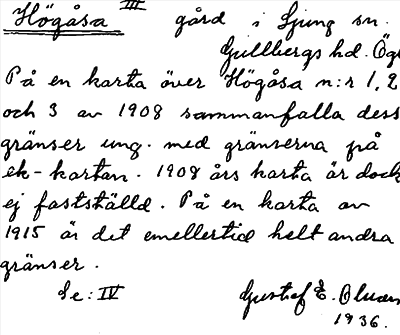 Högåsa III gård i Ljung sn.
Gullbergs hd. Ögl
På en karta över Högåsa n:r 1, 2
och 3 av 1908 sammanfalla dess
gränser ung. med gränserna på
ek-kartan. 1908 års karta är dock
ej fastställd. På en karta av
1915 är det emellertid helt andra
gränser.
Se: IV Gustaf E.
1936.